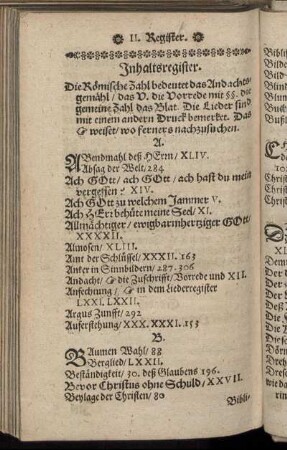 II. Register.
Inhaltsregister.
Die Römische Zahl bedeutet das Andachts
gemähl / das V. die Vorrede mit §§. die
gemeine Zahl das Blat. Die Lieder sind
mit einem andern Druck bemerket. Das
☞ weiset / wo ferners nachzusuchen.
A.
Abendmahl deß HErn / XLIV.
Absag der Welt / 284
Ach GOtt / ach GOtt / ach hast du mein
vergessen XIV.
Ach GOtt zu welchem Jammer V.
Ach HErr behüte meine Seel / XI.
Allmächtiger / ewigbarmhertziger GOtt /
XXXXII.
Almosen / XLIII.
Amt der Schlüssel / XXXII. 163
Anker in Sinnbildern / 287. 306
Andacht / ☞ die Zuschrifft / Vorrede und XII.
Anfechtung / ☞ in dem Liederregister
LXXI. LXXII.
Argus Zunfft / 292
Auferstehung / XXX. XXXI. 153
B.
Bäumen Wahl / 88
Berglied / LXXII.
Beständigkeit / 30. deß Glaubens 196.
Bevor Christus ohne Schuld / XXVII.
Beylage der Christen / 80
Bibli-